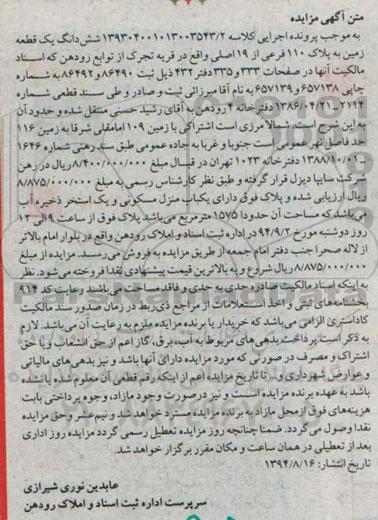 متن آگهی مزایده
به موجب پرونده اجرایی کلاسه ۱۳۹۳۰۴۰۰۱۰۱۳۰۰۳۵۴۳/۲ شش دانگ یک قطعه
زمین به پلاک ۱۱۰ فرعی از ۱۹ اصلی واقع در قریه تجرک از توابع رودهن که اسناد
مالکیت آنها در صفحات ۳۳۳ و ۳۳۵ دفتر ۴۳۲ ذیل ثبت ۸۶۴۹۰ و ۸۶۴۹۲ به شماره
چاپی ۶۵۷۱۳۸ و ۶۵۷۱۳۹ به نام آقا میرزائی ثبت و صادر و طی سند قطعی شماره
۲۱۱۴ـ ۱۳۸۶/۰۴/۲۱ دفترخانه ۴ رودهن به آقای رشید حسنی منتقل شده و حدود آن
به این شرح است. شمالا مرزی است اشتراکی با زمین ۱۰۹ امامقلی شرقا به زمین ۱۱۶
حد فاصل نهر عمومی است جنوبا و غربا به جاده عمومی طبق سند رهنی شماره ۱۶۴۶
ـ ۱۳۸۸/۱۰/۰۱ دفترخانه ۱۰۲۳ تهران در قبال مبلغ ۸/۴۰۰/۰۰۰/۰۰۰ ریال در رهن
شرکت سایپا دیزل قرار گرفته و طبق نظر کارشناس رسمی به مبلغ ۸/۸۷۵/۰۰۰/۰۰۰
ریال ارزیابی شده و پلاک فوق دارای یکباب منزل مسکونی و یک استخر ذخیره آب
می باشد که مساحت آن حدودا ۱۵۷۵ مترمربع می باشد پلاک فوق از ساعت ۹ الی ۱۲
روز دوشنبه مورخ ۹۴/۹/۲ در اداره ثبت اسناد و املاک رودهن واقع در بلوار امام بالاتر
از لاله صحرا جنب دفتر امام جمعه از طریق مزایده به فروش می رسد. مزایده از مبلغ
۸/۸۷۵/۰۰۰/۰۰۰ ریال شروع و به بالاترین قیمت پیشنهادی نقدا فروخته می شود. نظر
به اینکه اسناد مالکیت صادره حدی به حدی و فاقد مساحت می باشند رعایت کد ۹۱۴
بخشنامه های ثبتی و اخذ استعلامات از مراجع ذی ربط در زمان صدور سند مالکیت
کاداستری الزامی می باشد که خریدار یا برنده مزایده ملزم به رعایت آن می باشد. لازم
به ذکر است پرداخت بدهی های مربوط به آب، برق، گاز اعم از حق انشعاب و یا حق
اشتراک و مصرف در صورتی که مورد مزایده دارای آنها باشد و نیز بدهی های مالیاتی
و عوارض شهرداری و... تا تاریخ مزایده اعم از اینکه رقم قطعی آن معلوم شده یا نشده
باشد به عهده برنده مزایده است و نیز در صورت وجود مازاد، وجوه پرداختی بابت
هزینه های فوق از محل مازاد به برنده مزایده مسترد خواهد شد و نیم عشر و حق مزایده
نقدا وصول می گردد. ضمنا چنانچه روز مزایده تعطیل رسمی گردد مزایده روز اداری
بعد از تعطیلی در همان ساعت و مکان مقرر برگزار خواهد شد.
تاریخ انتشار: ۱۳۹۴/۸/۱۶
عابدین نوری شیرازی
سرپرست اداره ثبت اسناد و املاک رودهن